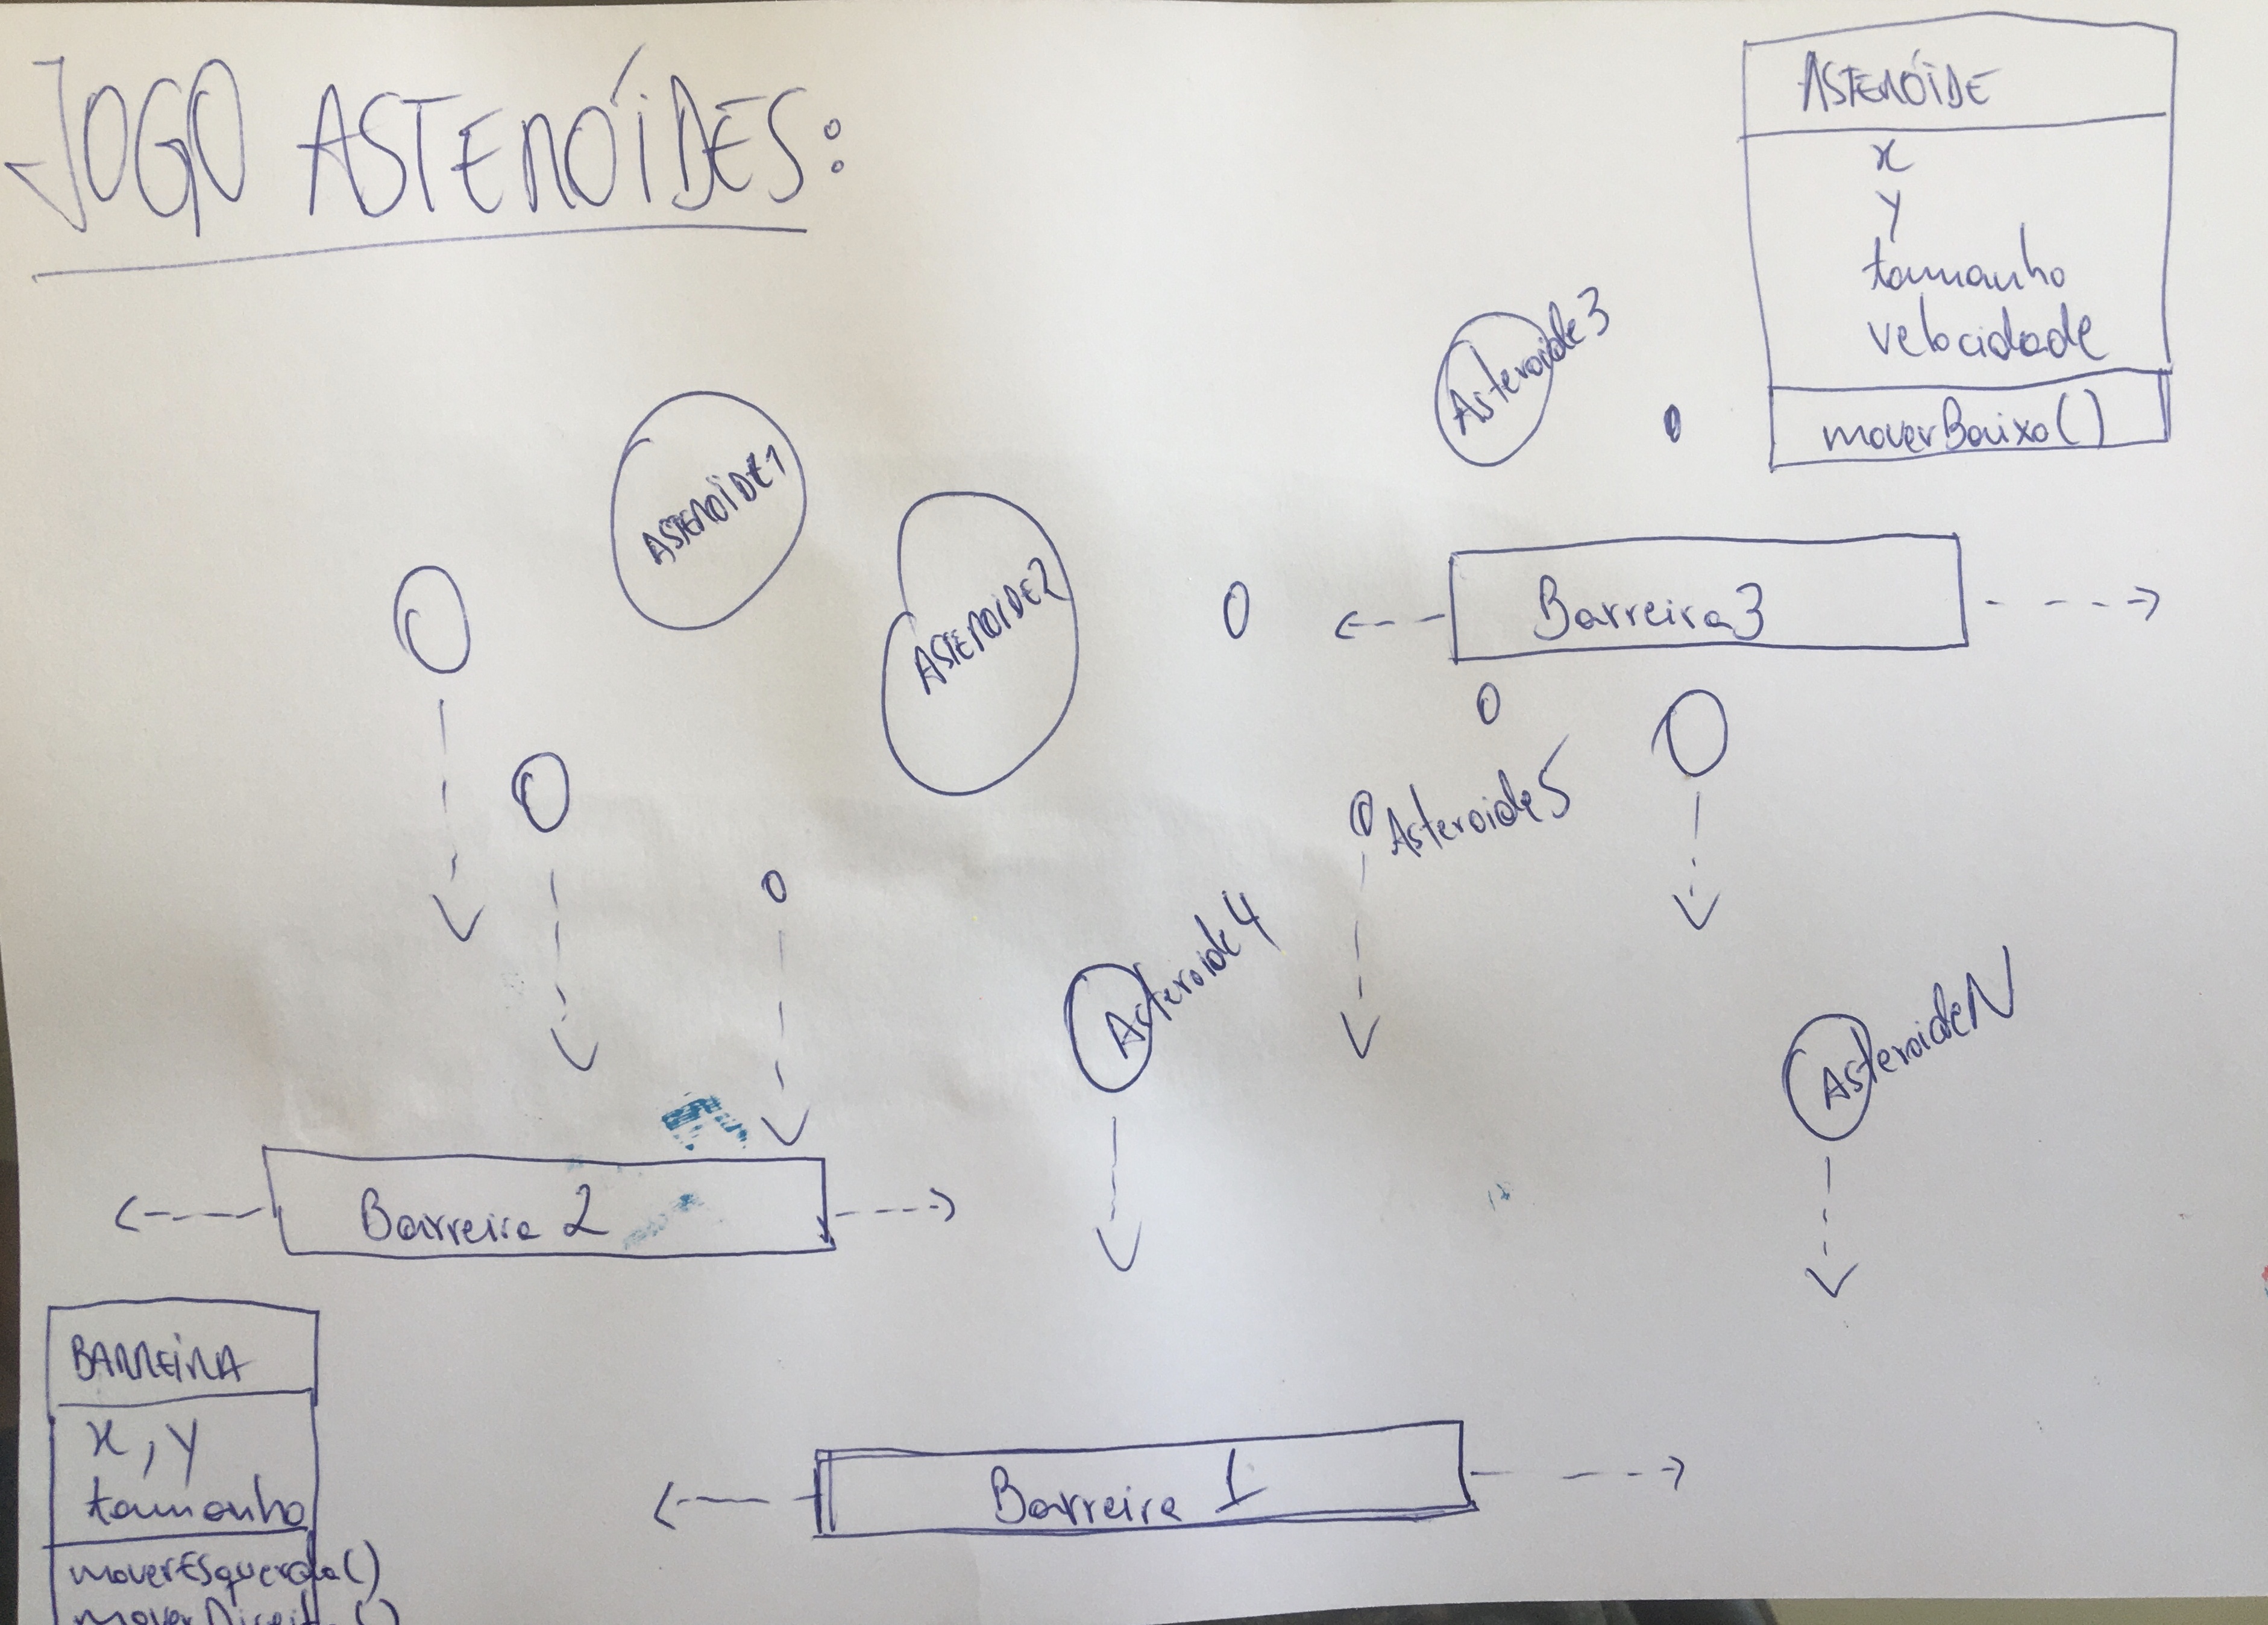 JOGO ASTERÓIDES:
ASTERÓIDE
x
y
tamanho
velocidade
moverBaixo()
Asteroide3
ASTEROIDE1
ASTEROIDE2
Barreira3
Asteroide5
Asteroide4
AsteroideN
Barreira 2
BARREIRA
x, y
tamanho
moverEsquerda()
moverDireita()
Barreira 1